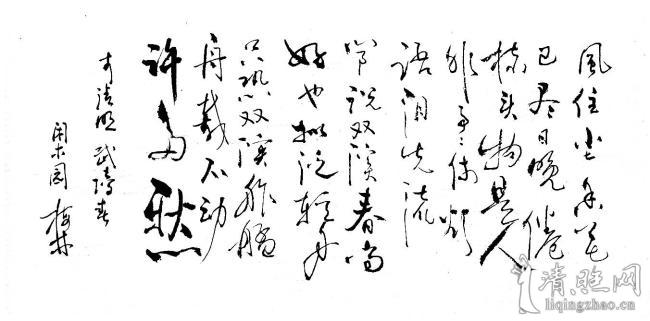 風住尘香花
已尽日晚倦
梳头物是人
非事事休欲
语泪先流
闻说双溪春尚
好也拟泛轻舟
只恐双溪舴艋
舟载不动
许多愁
李清照武陵春
梅林
清照网
liqingzhao.cn